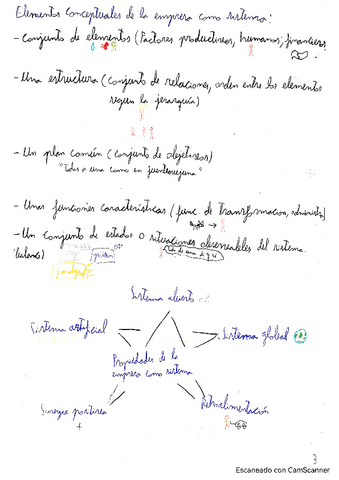 Elementos Conceptuales de la empresa como sistema:
- Conjunto de elementos (Factores productivos, humanos, financieros
- Una estructura (conjunto de relaciones, orden entre los elementos
según la jerarquía)
- Un plan común (conjunto de objetivos)
"Todos a una como en fuenteovejuna"
- Unas funciones características (func. de transformación,
- Un conjunto de estados o situaciones observables del sistema
(balance)
Sistema abierto
Sistema artificial
Sistema global
Propiedades de la
empresa como sistema
Sinergia positiva
+
Retroalimentación
3
Escaneado con CamScanner